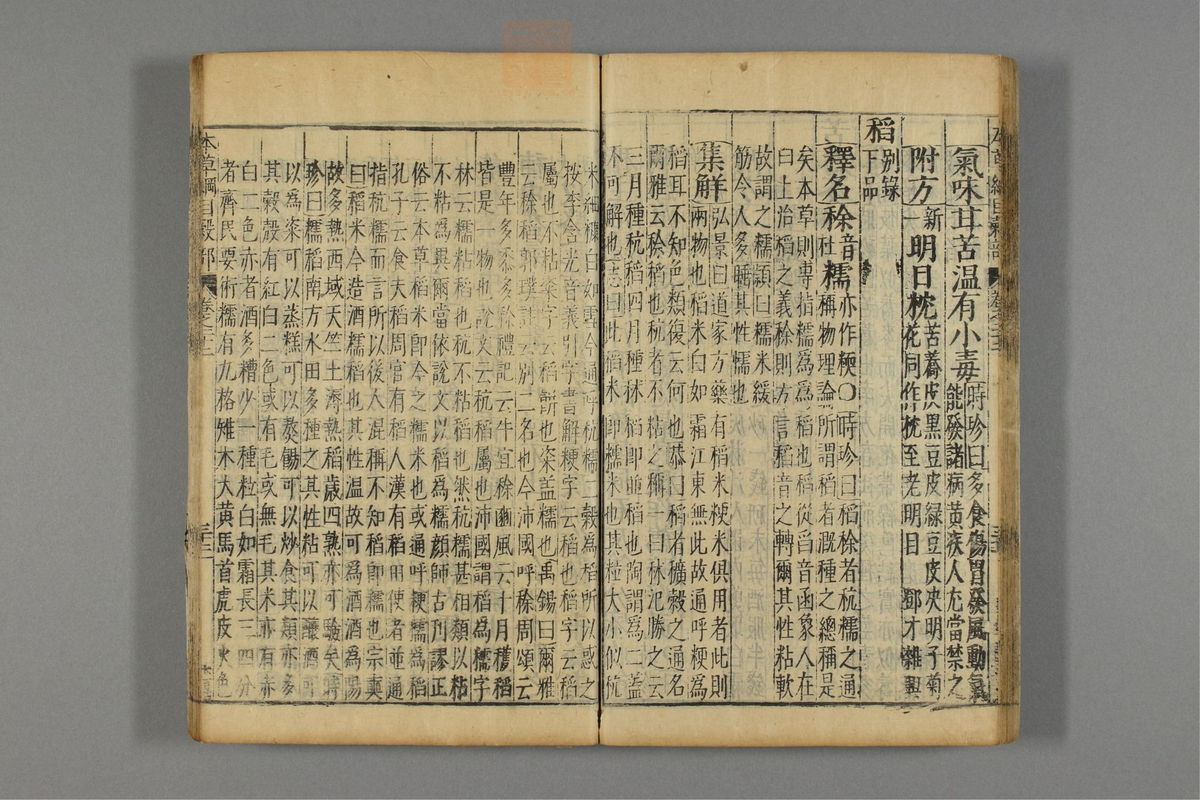 氣味甘苦溫有小毒時珍曰多食傷胃發風動氣能發諸病黃疾人尤當禁之
附方新一明目枕苦蕎皮黑豆皮綠豆皮决明子菊花同作枕至老明目 鄧才雜興
稻別錄下品
釋名稌音杜糯亦作稬〇時珍曰稻稌者秔糯之通稱物理論所謂稻者溉種之總稱是
矣本草則專指糯爲稻也稻從舀音函象人在
臼上治稻之義稌則方言稻音之轉爾其性粘軟
故謂之糯頴曰糯米緩
筋令人多睡其性懦也
集解弘景曰道家方藥有稻米粳米俱用者此則兩物也稻米白如霜江東無此故通呼粳爲
稻耳不知色類復云何也恭曰稻者穬穀之通名
爾雅云稌稻也秔者不粘之稱一曰秫氾勝之云
三月種秔稻四月種秫稻即並稻也陶謂爲二蓋
不可解也志曰此稻米即糯米也其粒大小似秔
米細糠白如雪今通呼秔糯二穀爲稻所以惑之
按李含光音義引字書解粳字云稻也稻字云稻
屬也不粘粢字云稻餅也粢蓋糯也禹錫曰爾雅
云稌稻郭璞註云別二名也今沛國呼稌周頌云
豐年多黍多稌禮記云牛宜稌豳風云十月穫稻
皆是一物也說文云秔稻屬也沛國謂稻爲糯字
林云糯粘稻也秔不粘稻也然秔糯甚相類以粘
不粘爲異爾當依說文以稻爲糯顏師古刊謬正
俗云本草稻米即今之糯米也或通呼粳糯爲稻
孔子云食夫稻周官有稻人漢有稻田使者並通
指秔糯而言所以後人混稱不知稻即糯也宗奭
曰稻米今造酒糯稻也其性溫故可爲酒酒爲陽
故多熱西域天竺土溽熱稻歲四熟亦可驗矣時
珍曰糯稻南方水田多種之其性粘可以釀酒可
以爲粢可以蒸糕可以熬餳可以炒食其類亦多
其穀殼有紅白二色或有毛或無毛其米亦有赤
白二色赤者酒多糟少一種粒白如霜長三四分
者齊民要術糯有九格雉木大黃馬首虎皮火色
本草綱目穀部